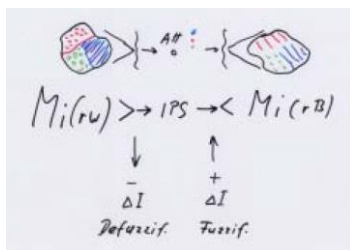 Att
Mi(rW) > → IPS → < Mi(rB)
− +
ΔI ΔI
Defuzzif. Fuzzif.